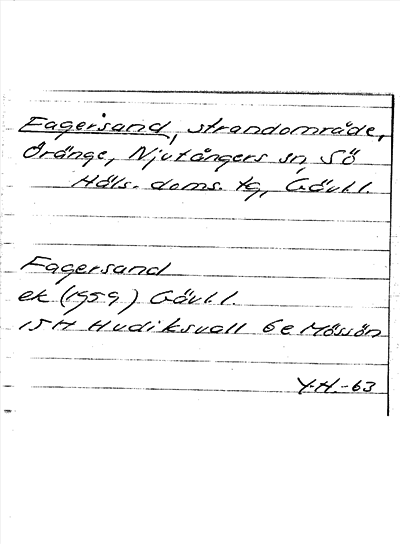 Fagersand, strandområde,
Öränge, Njutångers sn, Sö
Häls. doms. tg, Gävl.l.
Fagersand
ek (1959) Gävl.l.
15H Hudiksvall 6e Mössön
Y.H.-63